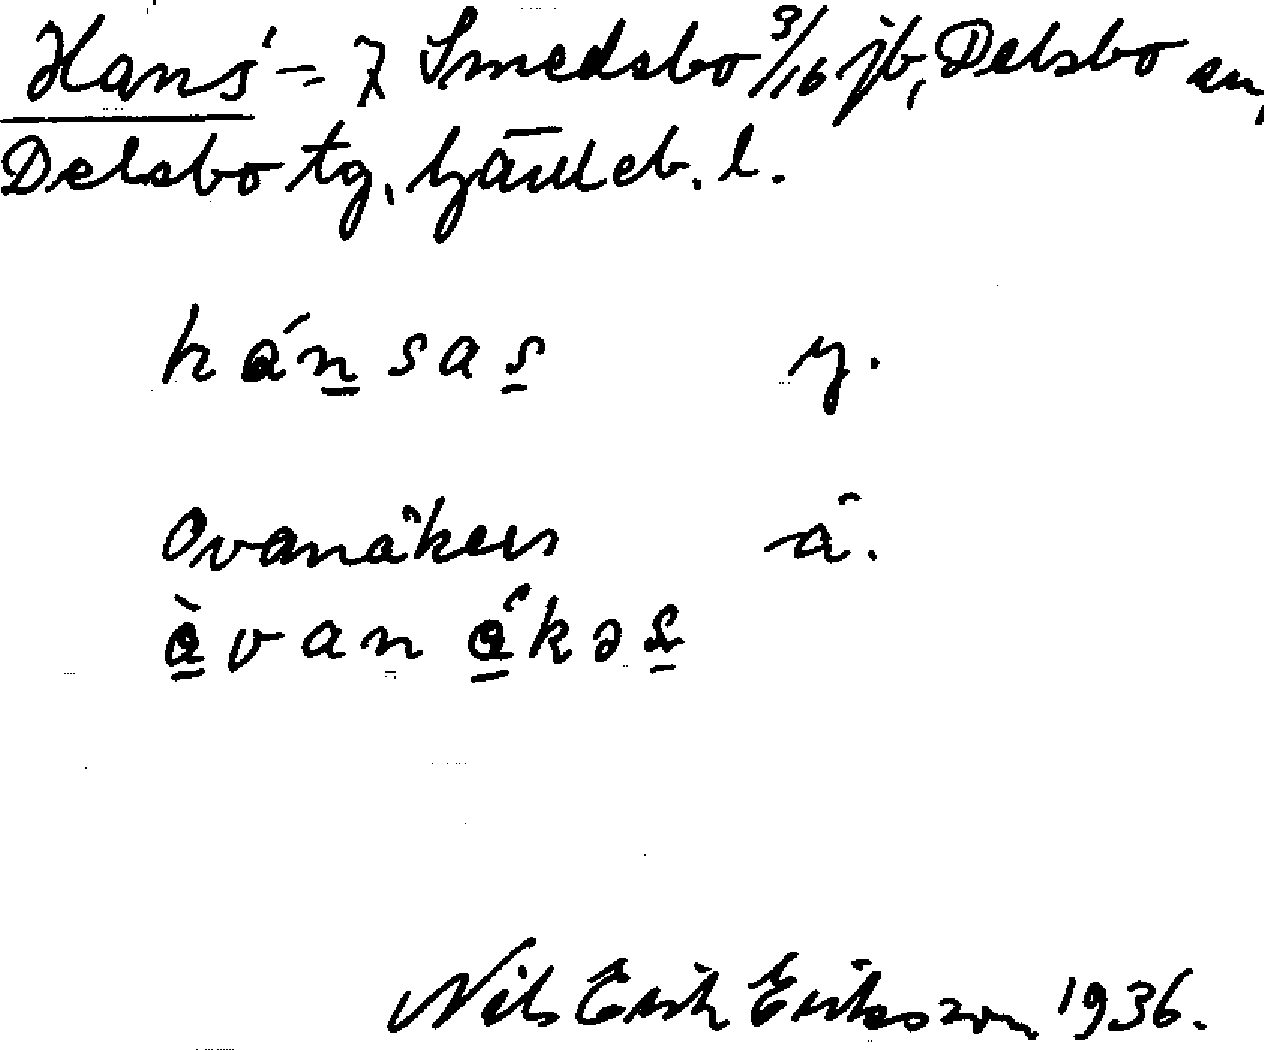 Hans' = 7 Smedsbo 3/16 jb, Delsbo sn,
Delsbo tg, Gävleb. l.
hánsas y.
Ovanåkers å.
òvanåkəs
Nils Erik Eriksson 1936.